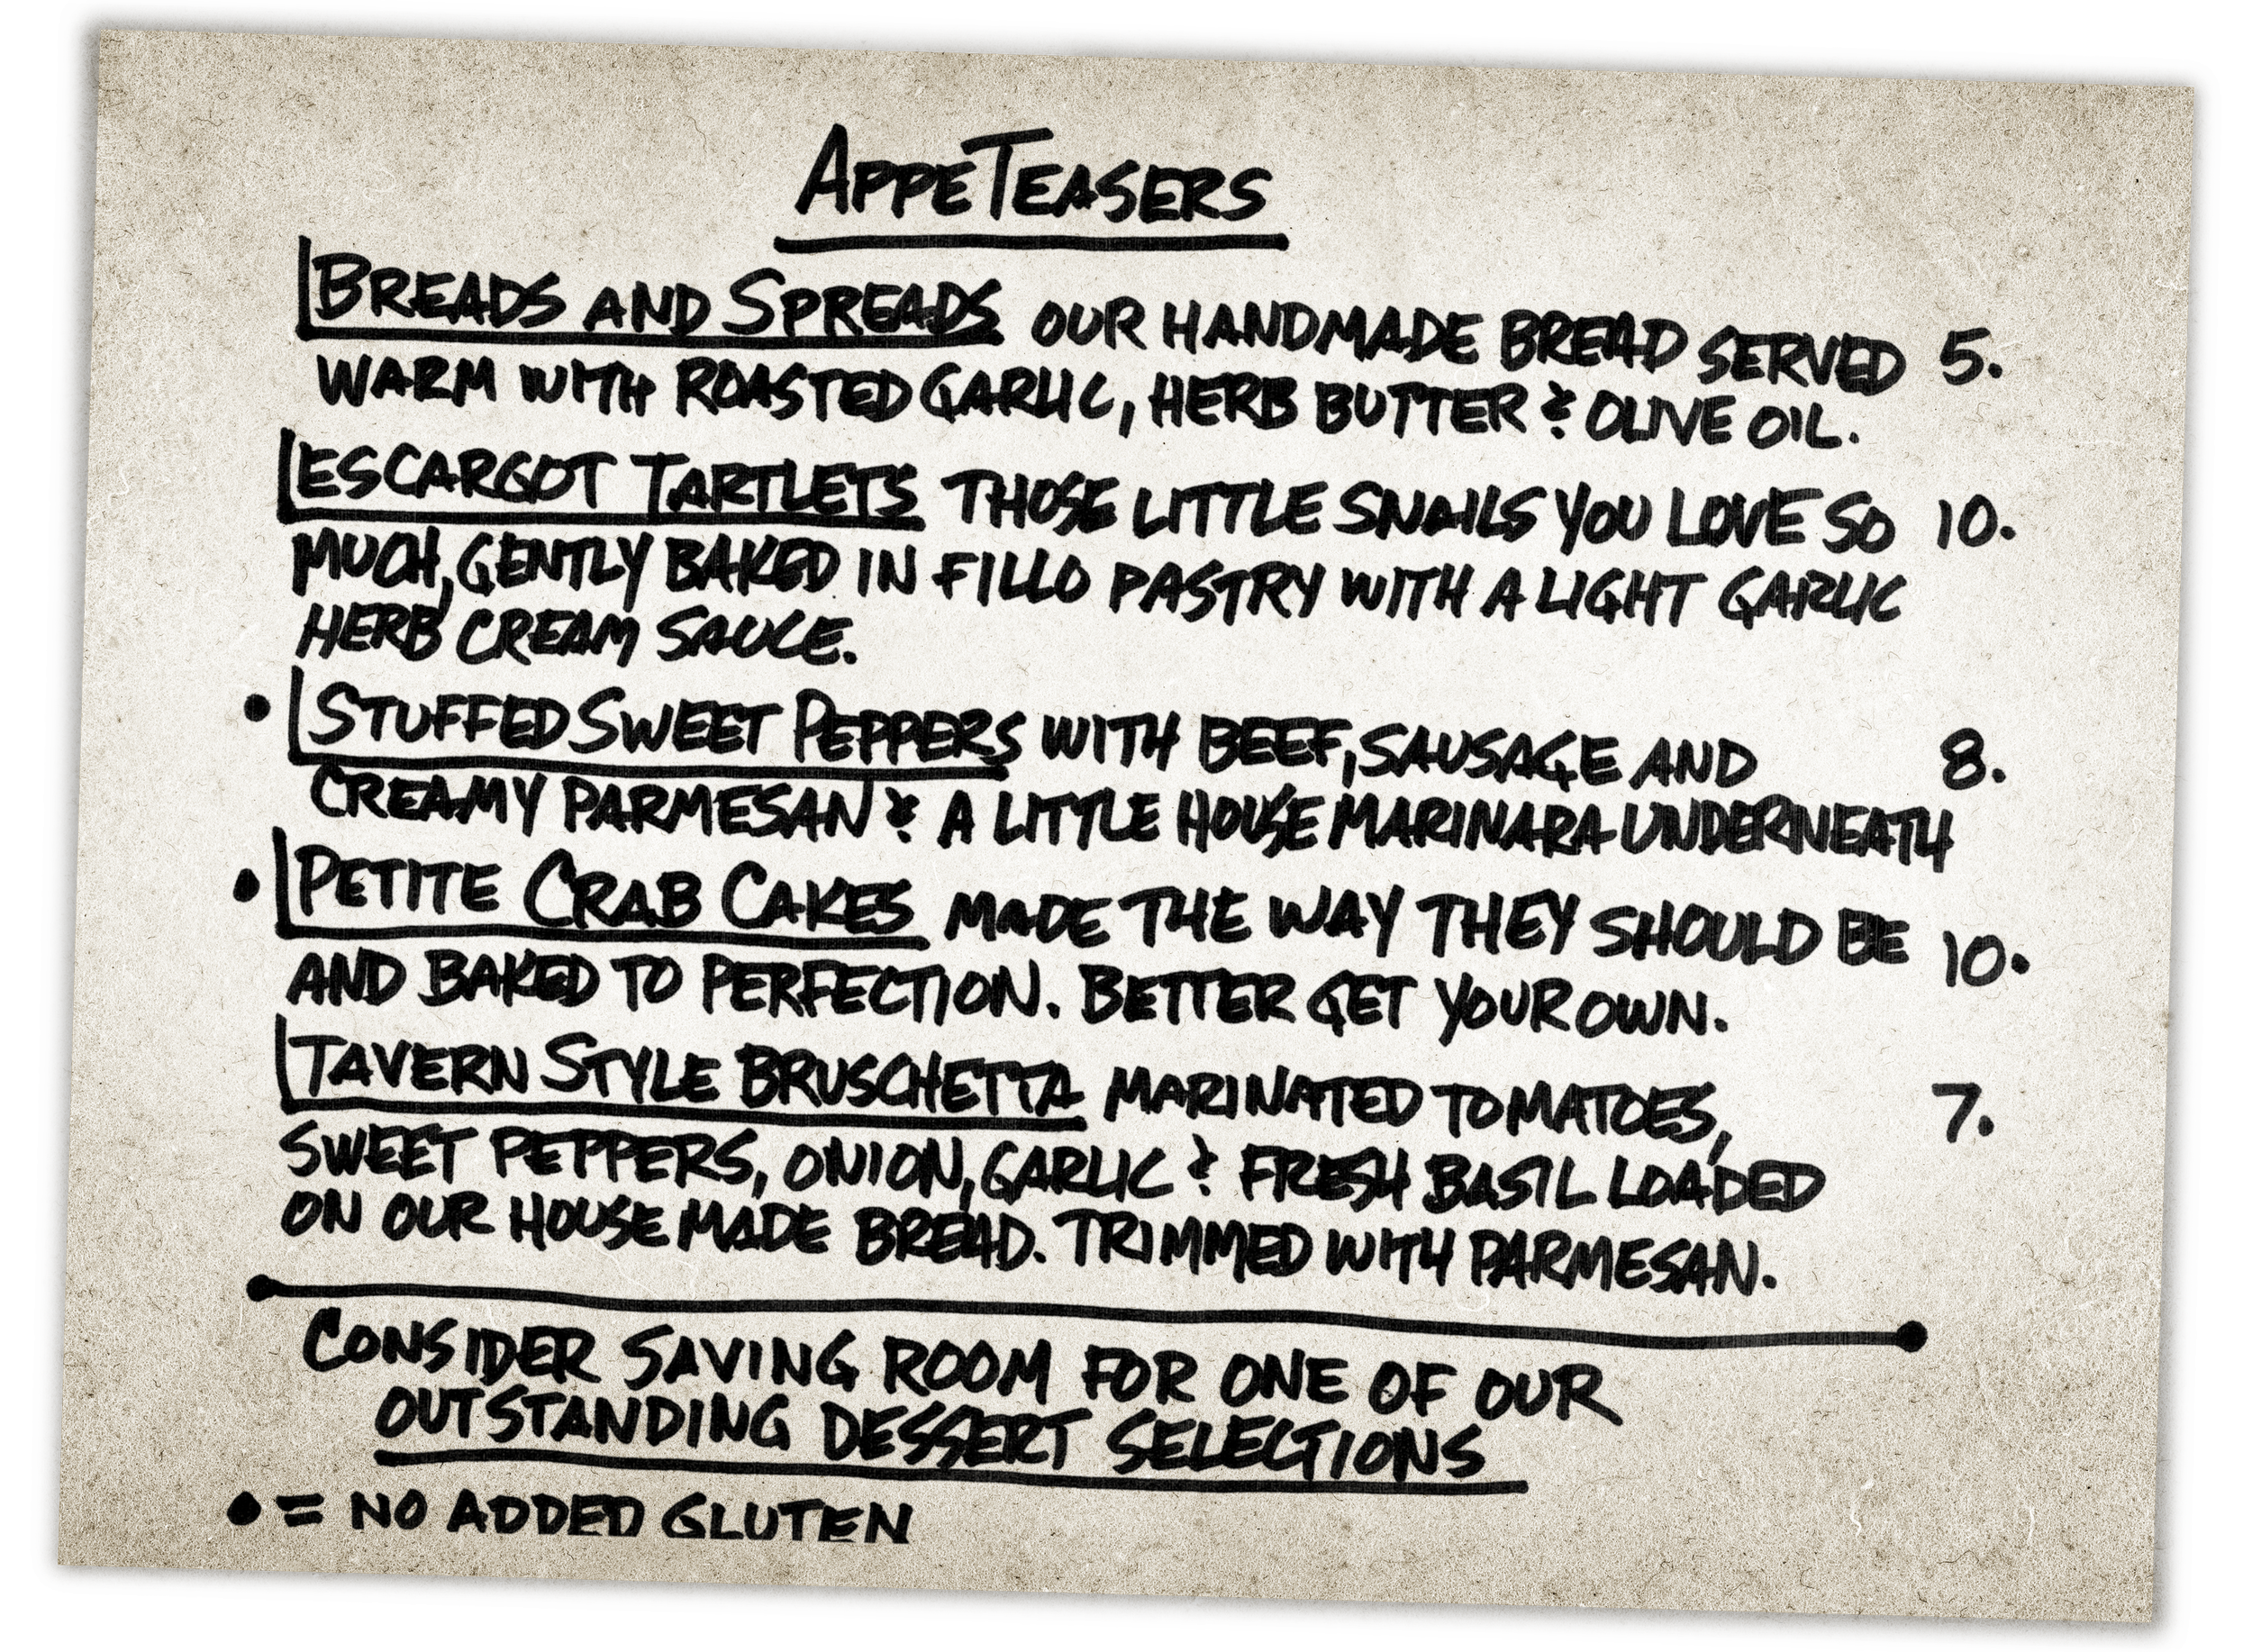 AppeTeasers
Breads and Spreads our handmade bread served 5.
warm with roasted garlic, herb butter & olive oil.
Escargot Tartlets those little snails you love so 10.
much, gently baked in fillo pastry with a light garlic
herb cream sauce.
• Stuffed Sweet Peppers with beef, sausage and 8.
creamy parmesan & a little house marinara underneath
• Petite Crab Cakes made the way they should be 10.
and baked to perfection. Better get your own.
Tavern Style Bruschetta marinated tomatoes, 7.
sweet peppers, onion, garlic & fresh basil loaded
on our house made bread. Trimmed with parmesan.
Consider saving room for one of our
outstanding dessert selections
• = no added gluten